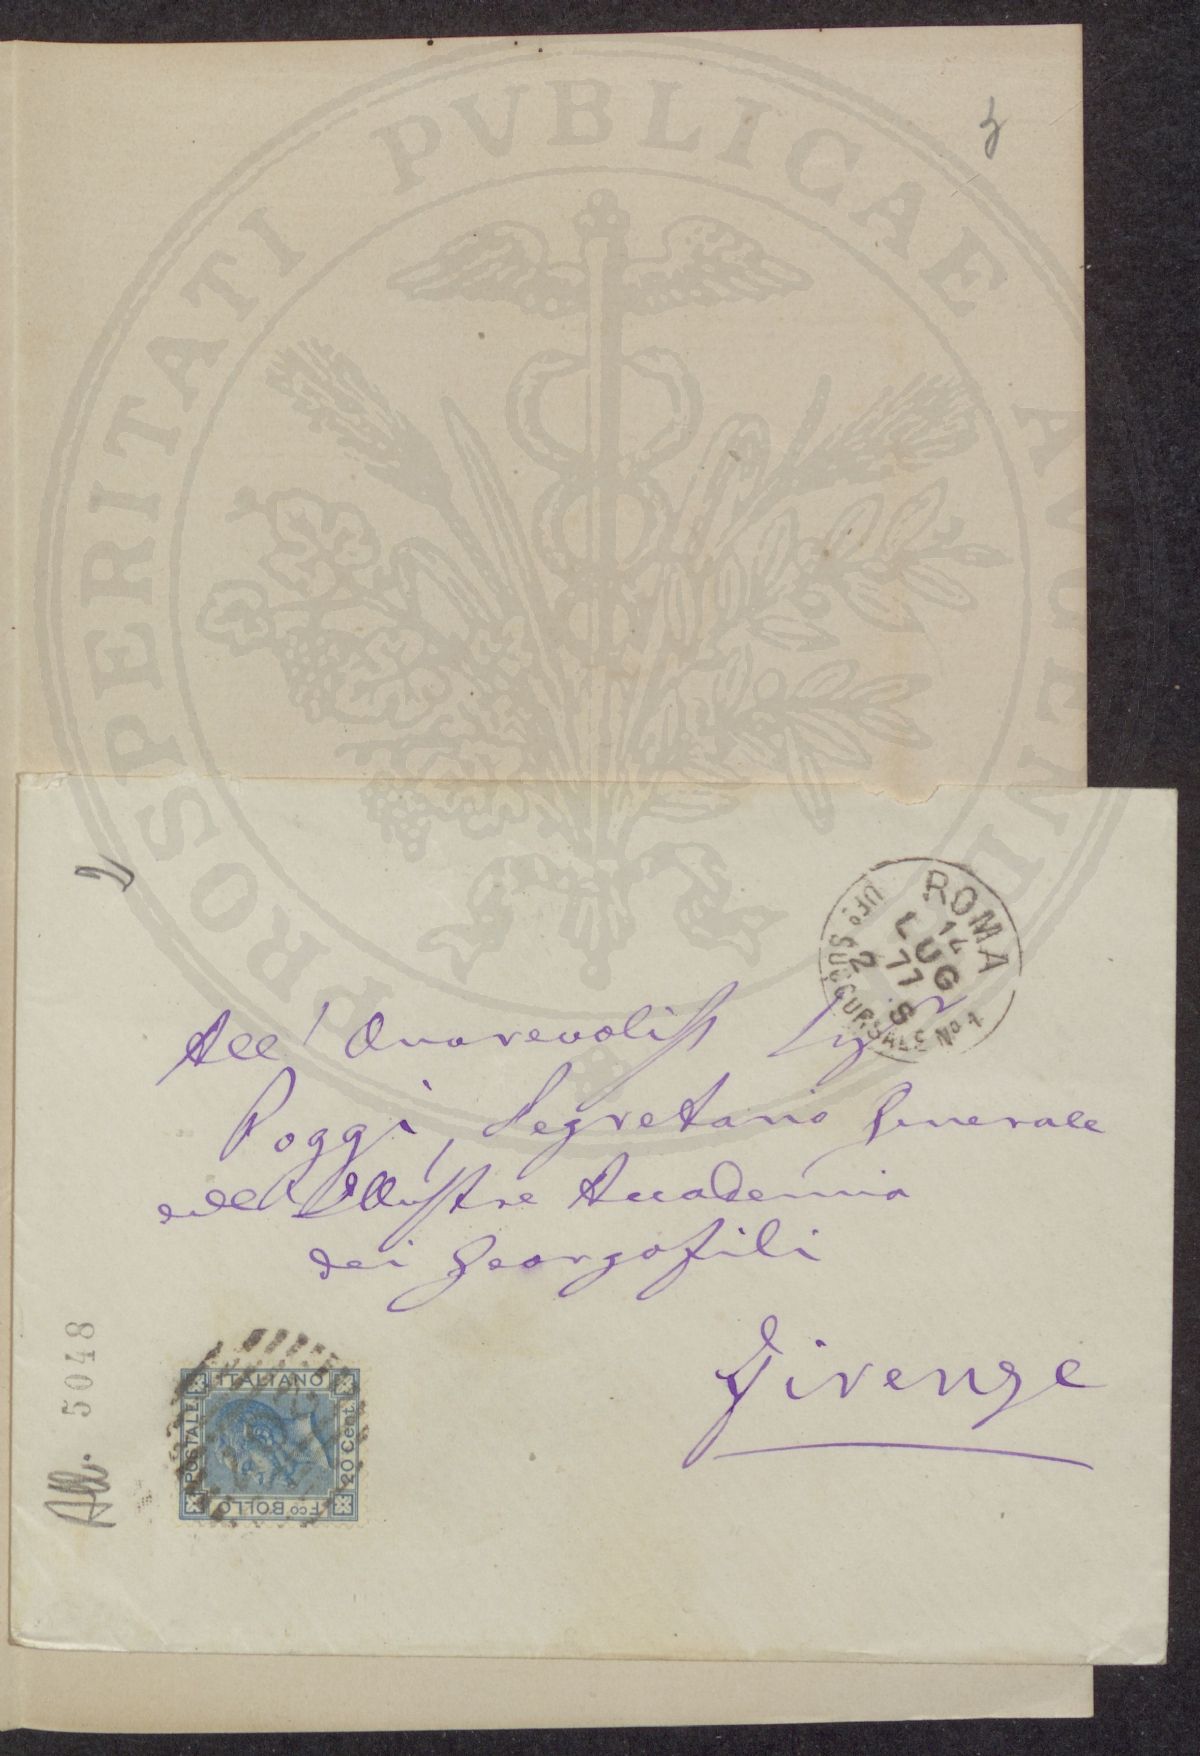 3
PROSPERITATI PUBLICAE AUGENDAE
2
ROMA
14
LUG
77
2 S
UFº SUCCURSALE Nº 1
All' Onorevoliss Sigr
Poggi, Segretario Generale
dell' Illustre Accademia
dei Georgofili
Firenze
All. 5048
POSTALE ITALIANO
20 Cent.
Fco BOLLO